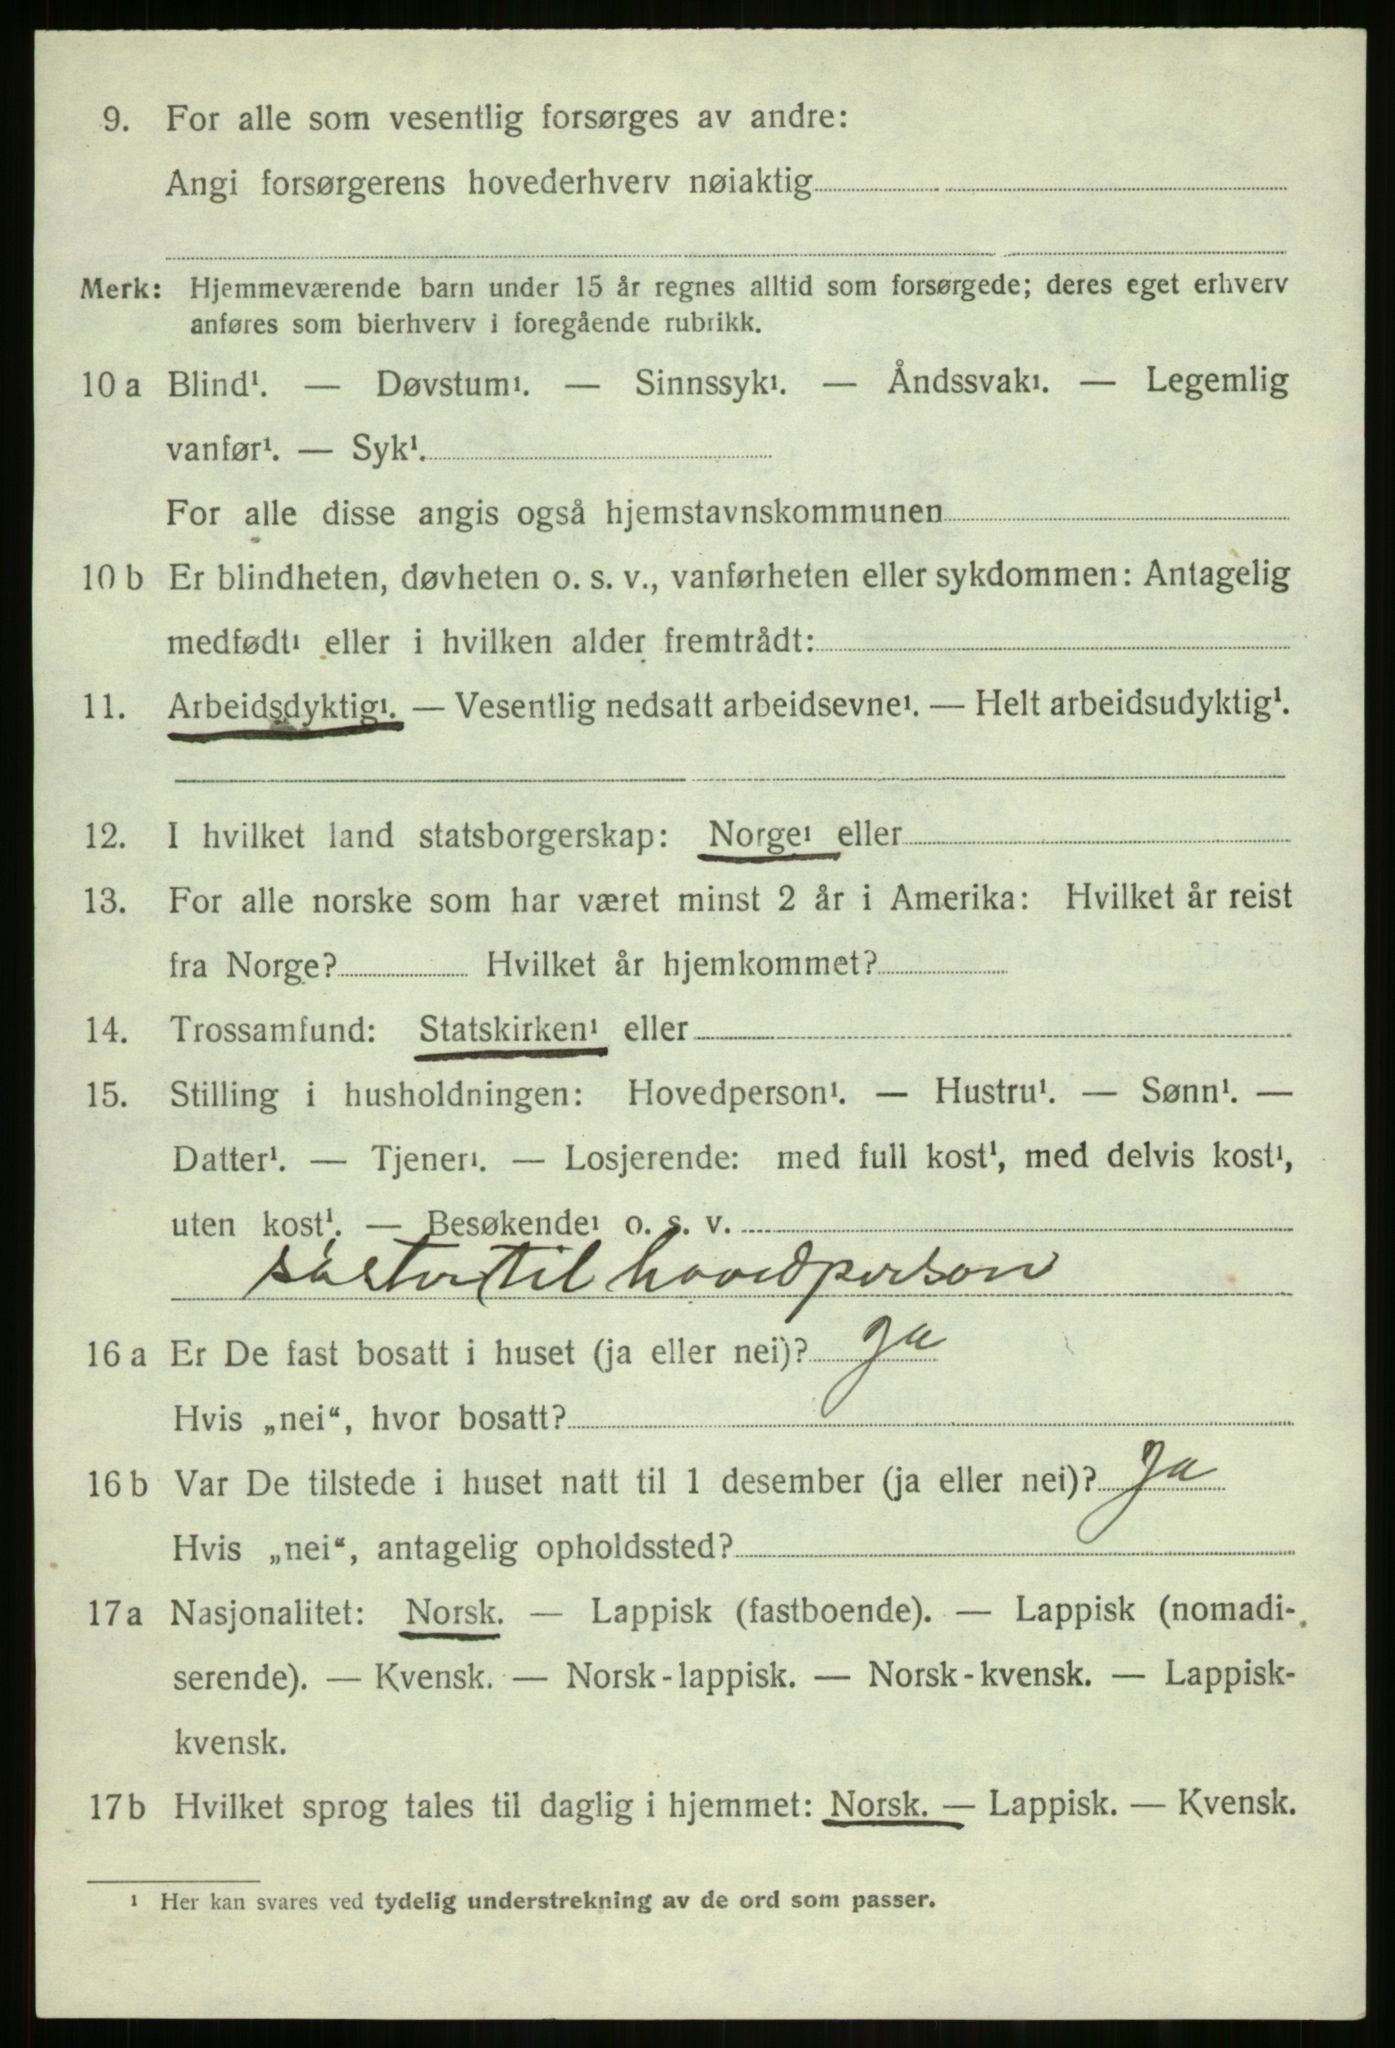 9. For alle som vesentlig forsørges av andre:
Angi forsørgerens hovederhverv nøiaktig
Merk: Hjemmeværende barn under 15 år regnes alltid som forsørgede; deres eget erhverv
anføres som bierhverv i foregående rubrikk.
10 a Blind¹. — Døvstum¹. — Sinnssyk¹. — Åndssvak¹. — Legemlig
vanfør¹. — Syk¹.
For alle disse angis også hjemstavnskommunen
10 b Er blindheten, døvheten o. s. v., vanførheten eller sykdommen: Antagelig
medfødt¹ eller i hvilken alder fremtrådt:
11. Arbeidsdyktig¹. — Vesentlig nedsatt arbeidsevne¹. — Helt arbeidsudyktig¹.
12. I hvilket land statsborgerskap: Norge¹ eller
13. For alle norske som har været minst 2 år i Amerika: Hvilket år reist
fra Norge? Hvilket år hjemkommet?
14. Trossamfund: Statskirken¹ eller
15. Stilling i husholdningen: Hovedperson¹. — Hustru¹. — Sønn¹. —
Datter¹. — Tjener¹. — Losjerende: med full kost¹, med delvis kost¹,
uten kost¹. — Besøkende¹ o. s. v.
søster til hovedperson
16 a Er De fast bosatt i huset (ja eller nei)? ja
Hvis „nei“, hvor bosatt?
16 b Var De tilstede i huset natt til 1 desember (ja eller nei)? ja
Hvis „nei“, antagelig opholdssted?
17 a Nasjonalitet: Norsk. — Lappisk (fastboende). — Lappisk (nomadi-
serende). — Kvensk. — Norsk-lappisk. — Norsk-kvensk. — Lappisk-
kvensk.
17 b Hvilket sprog tales til daglig i hjemmet: Norsk. — Lappisk. — Kvensk.
¹ Her kan svares ved tydelig understrekning av de ord som passer.